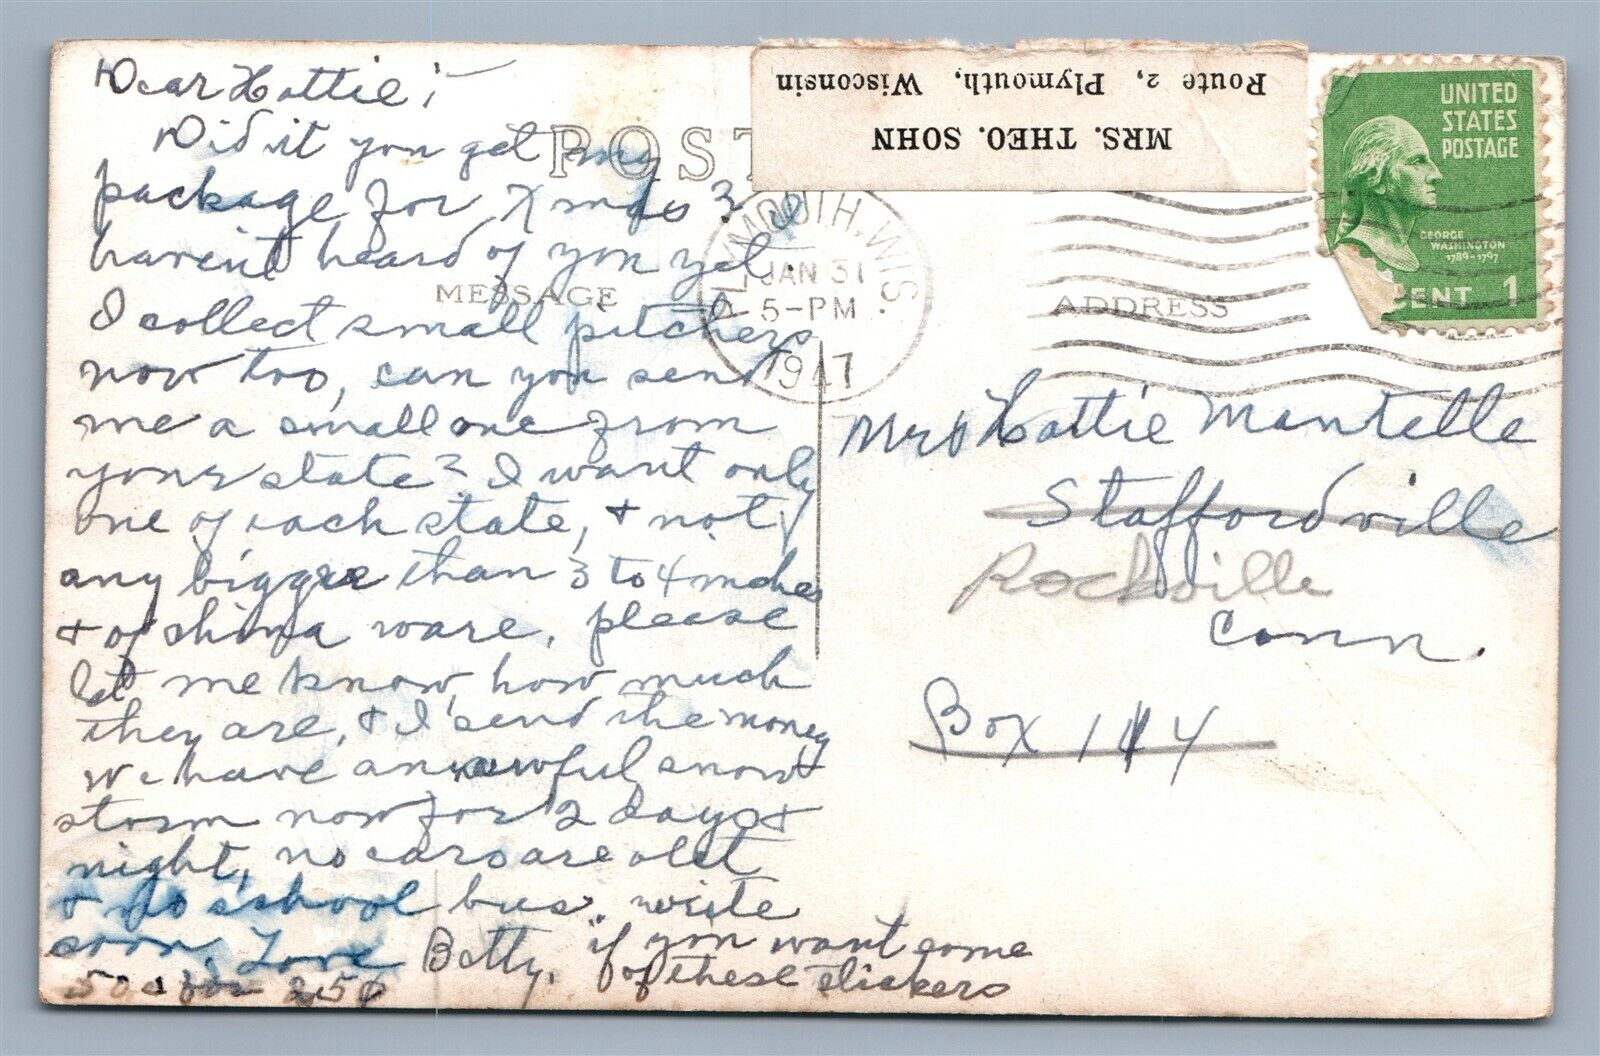 Dear Hattie;
Did it you get my
package for Xmas? I
haven't heard of you yet.
I collect small pitchers
now too, can you send
me a small one from
your state? I want only
one of each state, & not
any bigger than 3 to 4 inches
& of china ware, please
let me know how much
they are, & I'send the money
We have an awful snow
storm now for 2 days &
night, no cars are out
& no school bus. write
soon, Love Betty.
"if you want some
of these stickers
50 for 25¢
POST
MESSAGE
ADDRESS
MRS. THEO. SOHN
Route 2, Plymouth, Wisconsin
PLYMOUTH, WIS.
JAN 31
5-PM
1947
UNITED
STATES
POSTAGE
GEORGE
WASHINGTON
1789-1797
CENT 1
Mrs Hattie Mantelle
Staffordville
Rockville
Conn.
Box 114